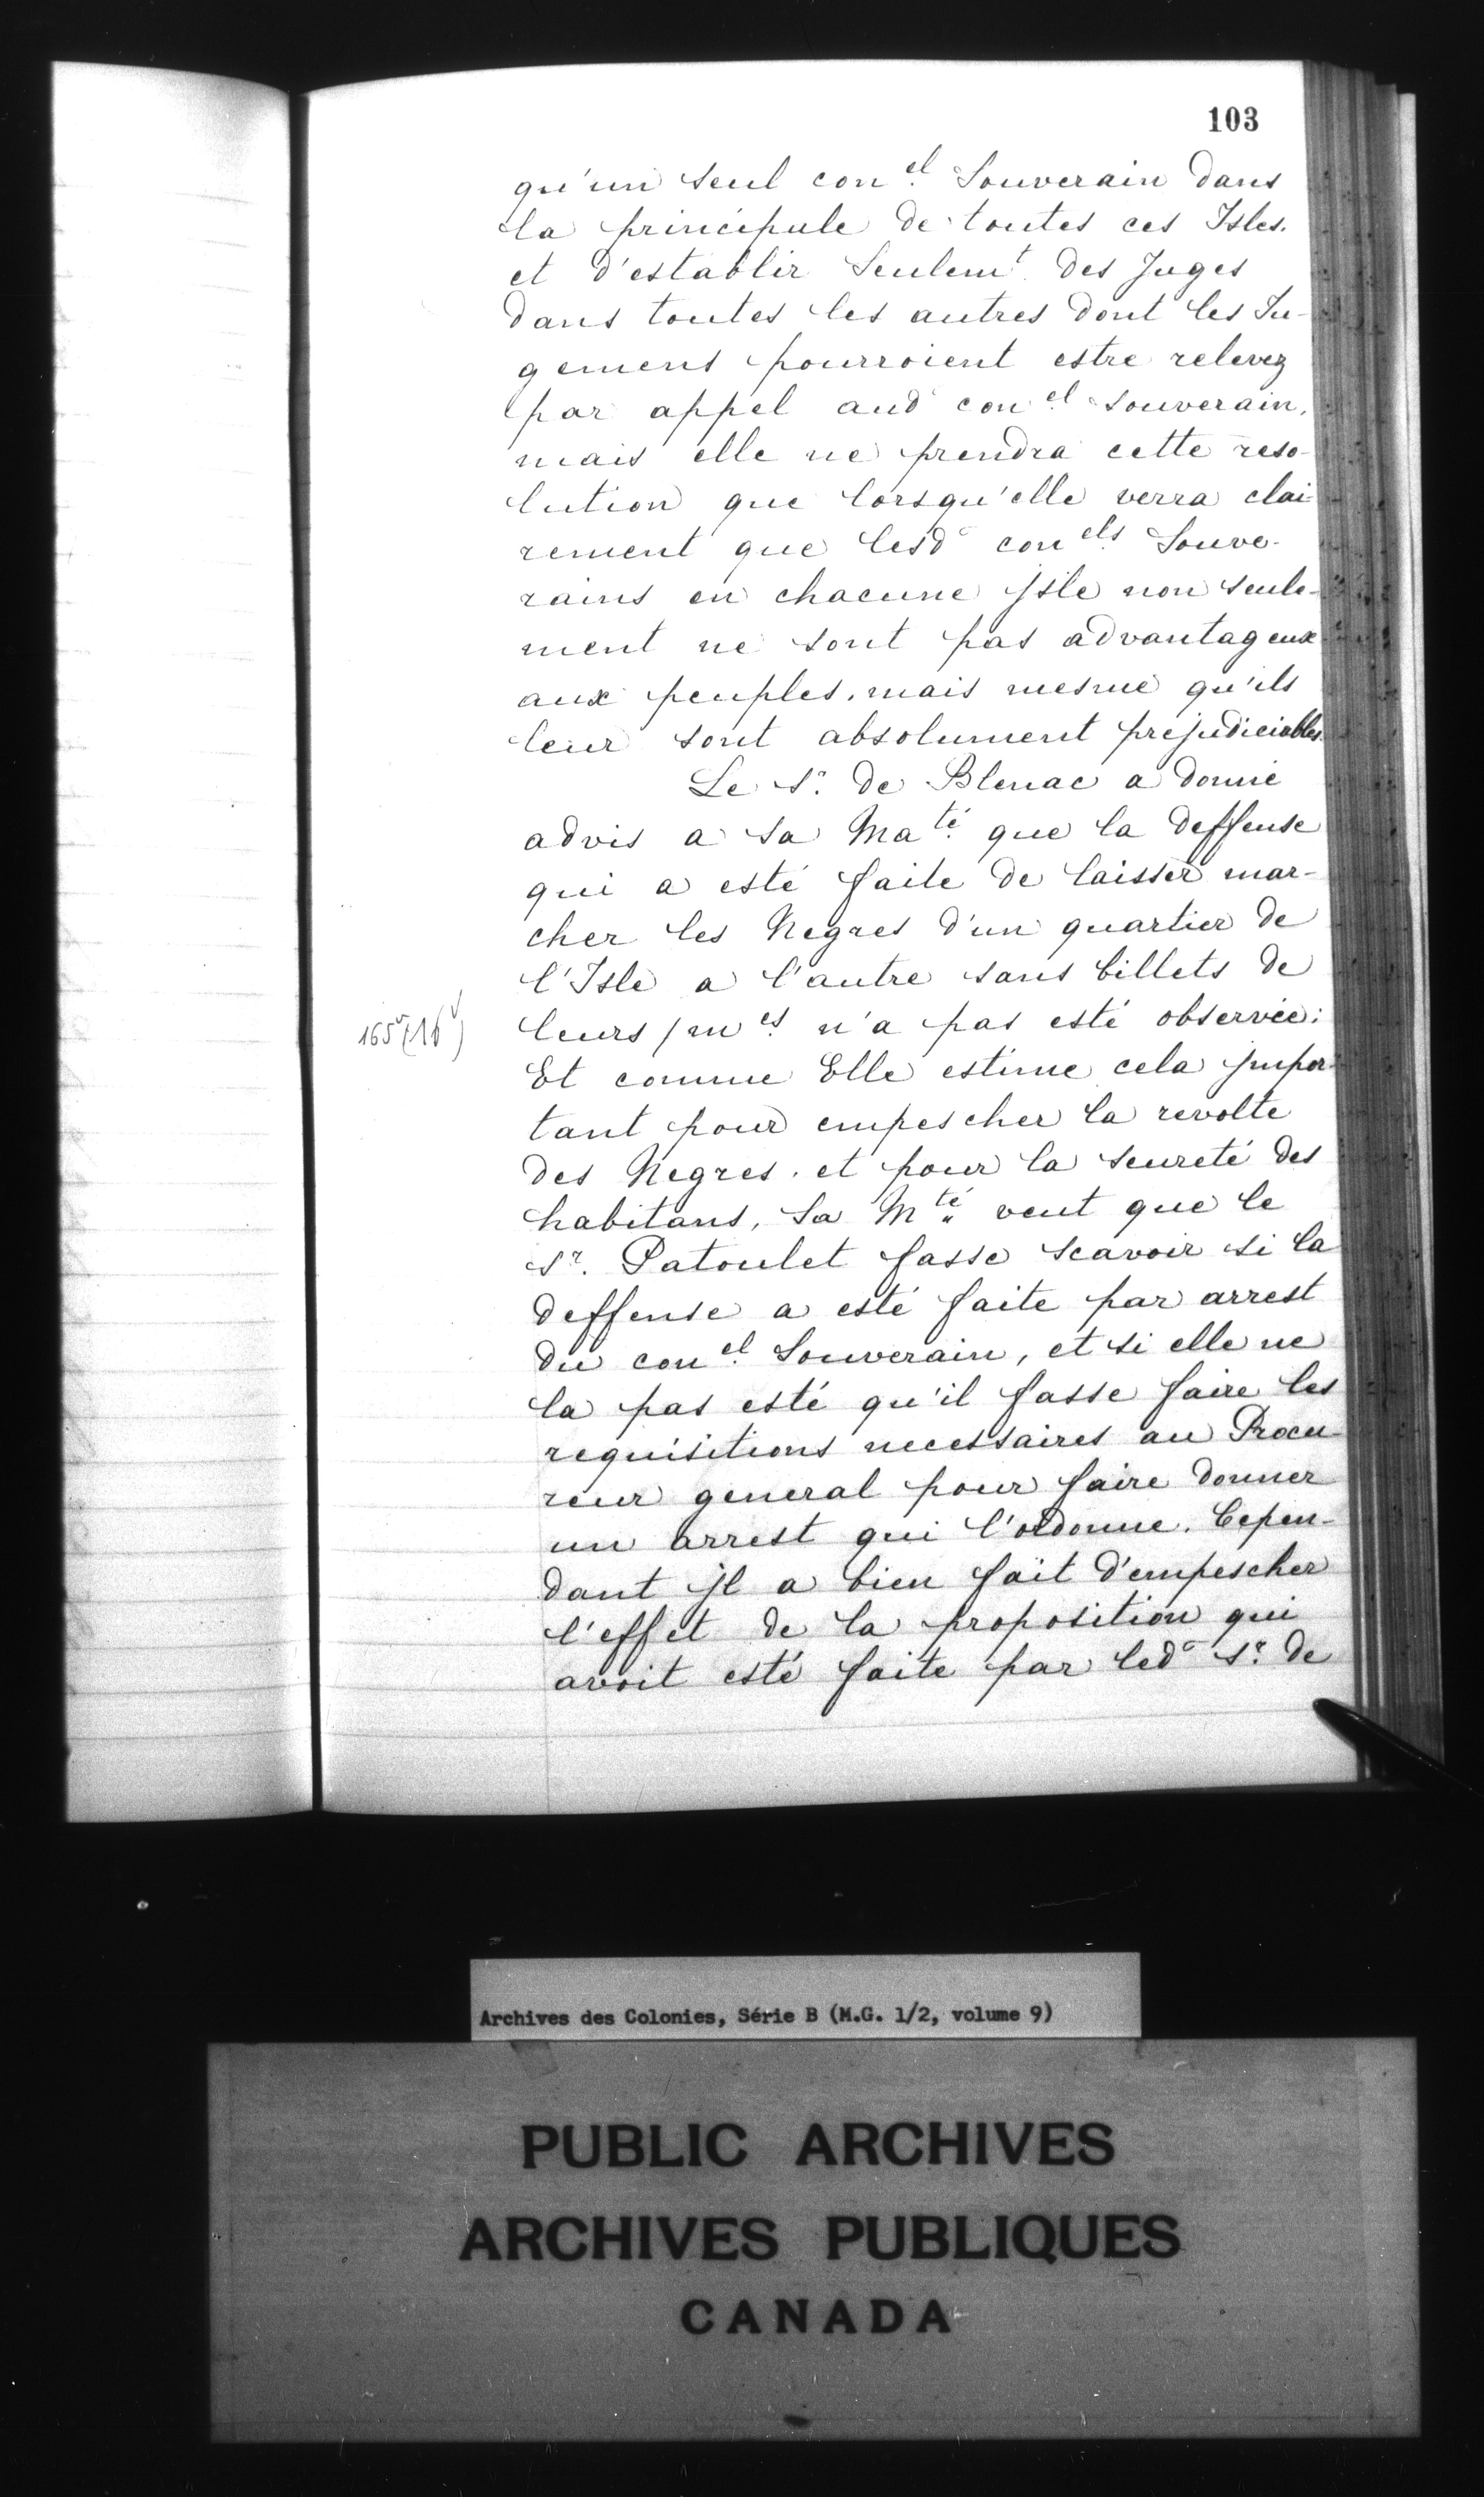 103
qu'un seul con.el Souverain dans
la principale de toutes ces Isles.
et d'establir Seulemt des Juges
dans toutes les autres dont les Ju-
gemens pourroient estre relevez
par appel aud con.el souverain,
mais elle ne prendra cette reso-
lution que lorsqu'elle verra clai-
rement que lesd con.els Souve-
rains en chacune jsle non seule-
ment ne sont pas advantageux
aux peuples, mais mesme qu'ils
leur sont absolument prejudiciables.
Le Sr. de Blenac a donné
advis a Sa Ma.té que la deffense
qui a esté faite de laisser mar-
cher les Negres d'un quartier de
l'Isle a l'autre sans billets de
leurs / m.es n'a pas esté observée;
Et comme Elle estime cela jmpor-
tant pour empescher la revolte
des Negres, et pour la seureté des
habitans, Sa M.té veut que le
Sr. Patoulet fasse scavoir si la
deffense a esté faite par arrest
du con.el Souverain, et si elle ne
la pas esté qu'il fasse faire les
requisitions necessaires au Procu-
reur general pour faire donner
un arrest qui l'ordonne. Cepen-
dant jl a bien fait d'empescher
l'effet de la proposition qui
avoit esté faite par led Sr. de
Archives des Colonies, Série B (M.G. 1/2, volume 9)
PUBLIC ARCHIVES
ARCHIVES PUBLIQUES
CANADA